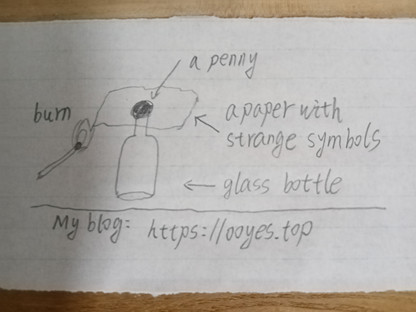 a penny
burn
a paper with
strange symbols
glass bottle
My blog: https://ooyes.top